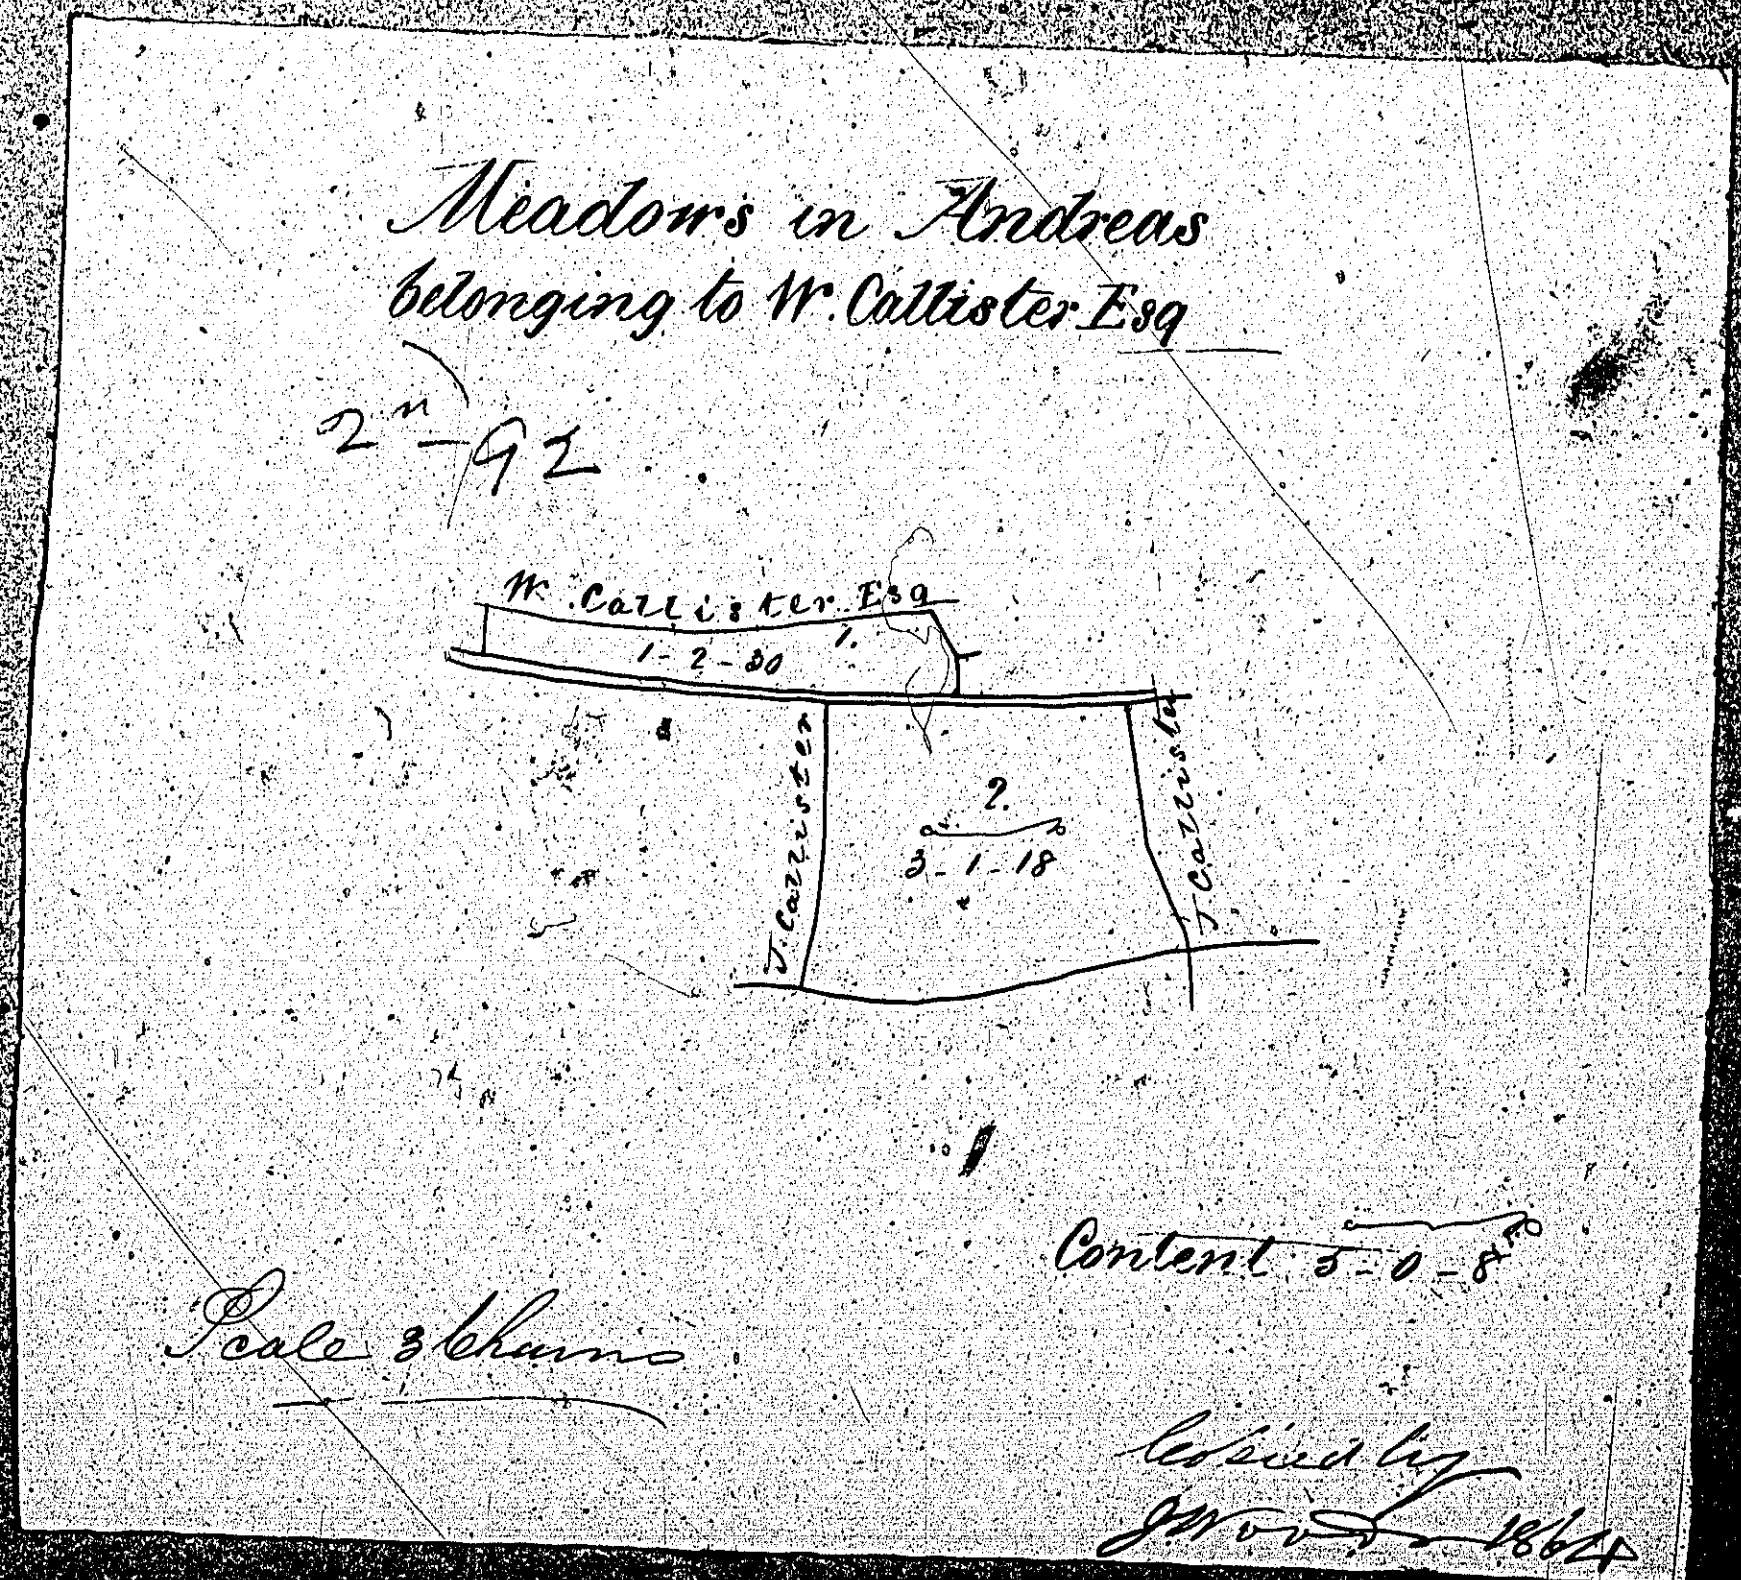 Meadows in Andreas
belonging to W. Callister Esq
2n - 92
W. Callister Esq
1.
1 - 2 - 30
J. Callister
2.
3 - 1 - 18
J. Callister
Content 5 - 0 - 8
Scale 3 Chains
Copied by
J. Woods 1864